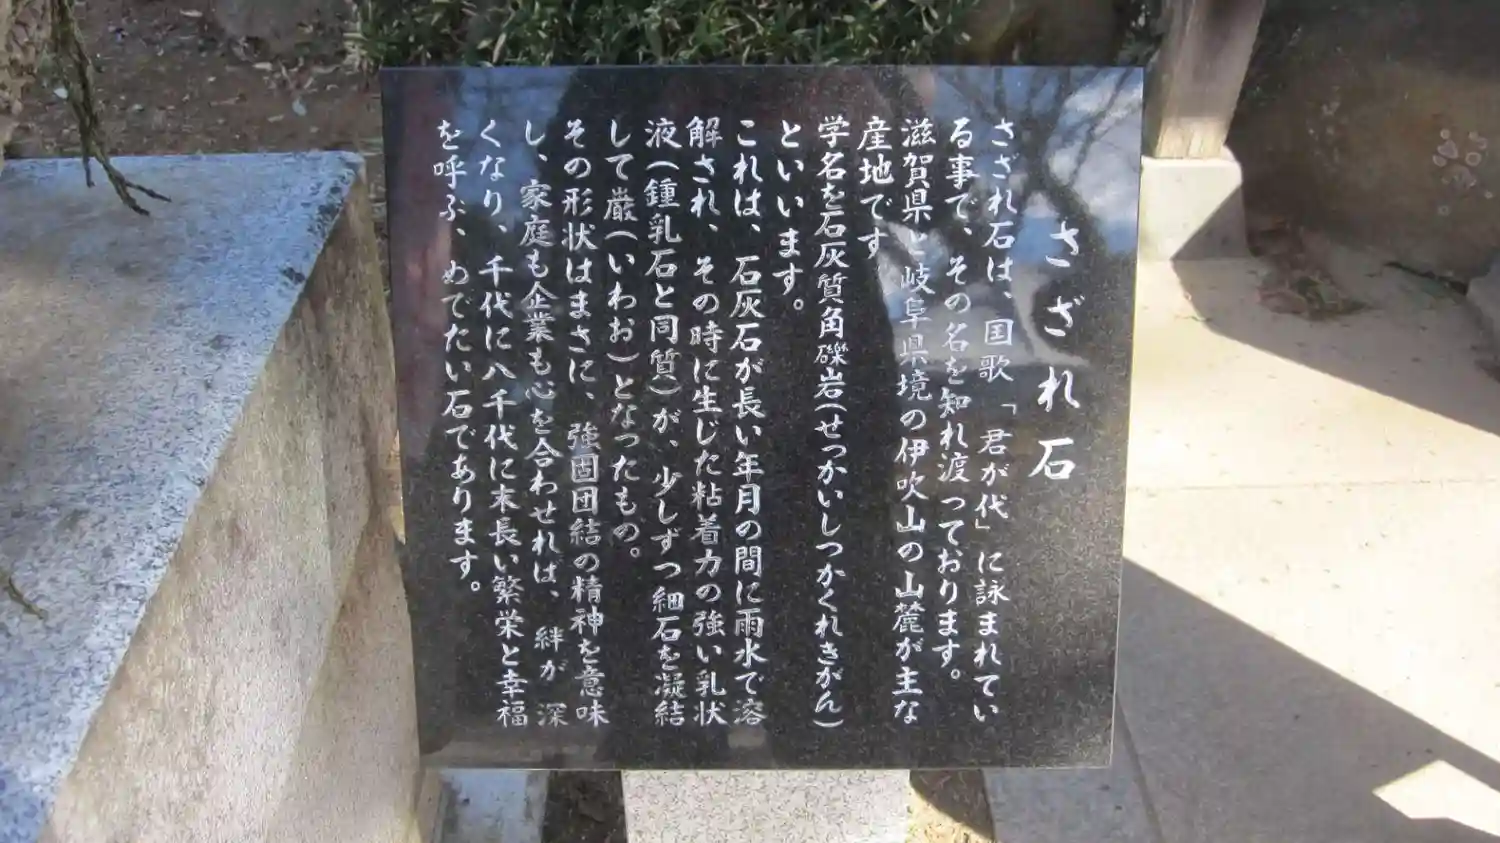 さざれ石
さざれ石は、国歌「君が代」に詠まれてい
る事で、その名を知れ渡っております。
滋賀県と岐阜県境の伊吹山の山麓が主な
産地です
学名を石灰質角礫岩(せっかいしつかくれきがん)
といいます。
これは、石灰石が長い年月の間に雨水で溶
解され、その時に生じた粘着力の強い乳状
液(鍾乳石と同質)が、少しずつ細石を凝結
して巌(いわお)となったもの。
その形状はまさに、強固団結の精神を意味
し、家庭も企業も心を合わせれば、絆が深
くなり、千代に八千代に末長い繁栄と幸福
を呼ぶ、めでたい石であります。